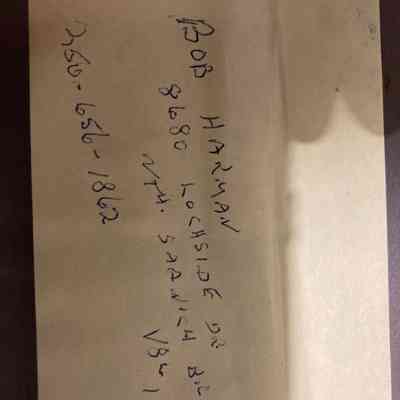 BOB HARMAN
8680 LOCHSIDE DR
NTH. SAANICH B.C
V8L 1
250-656-1862